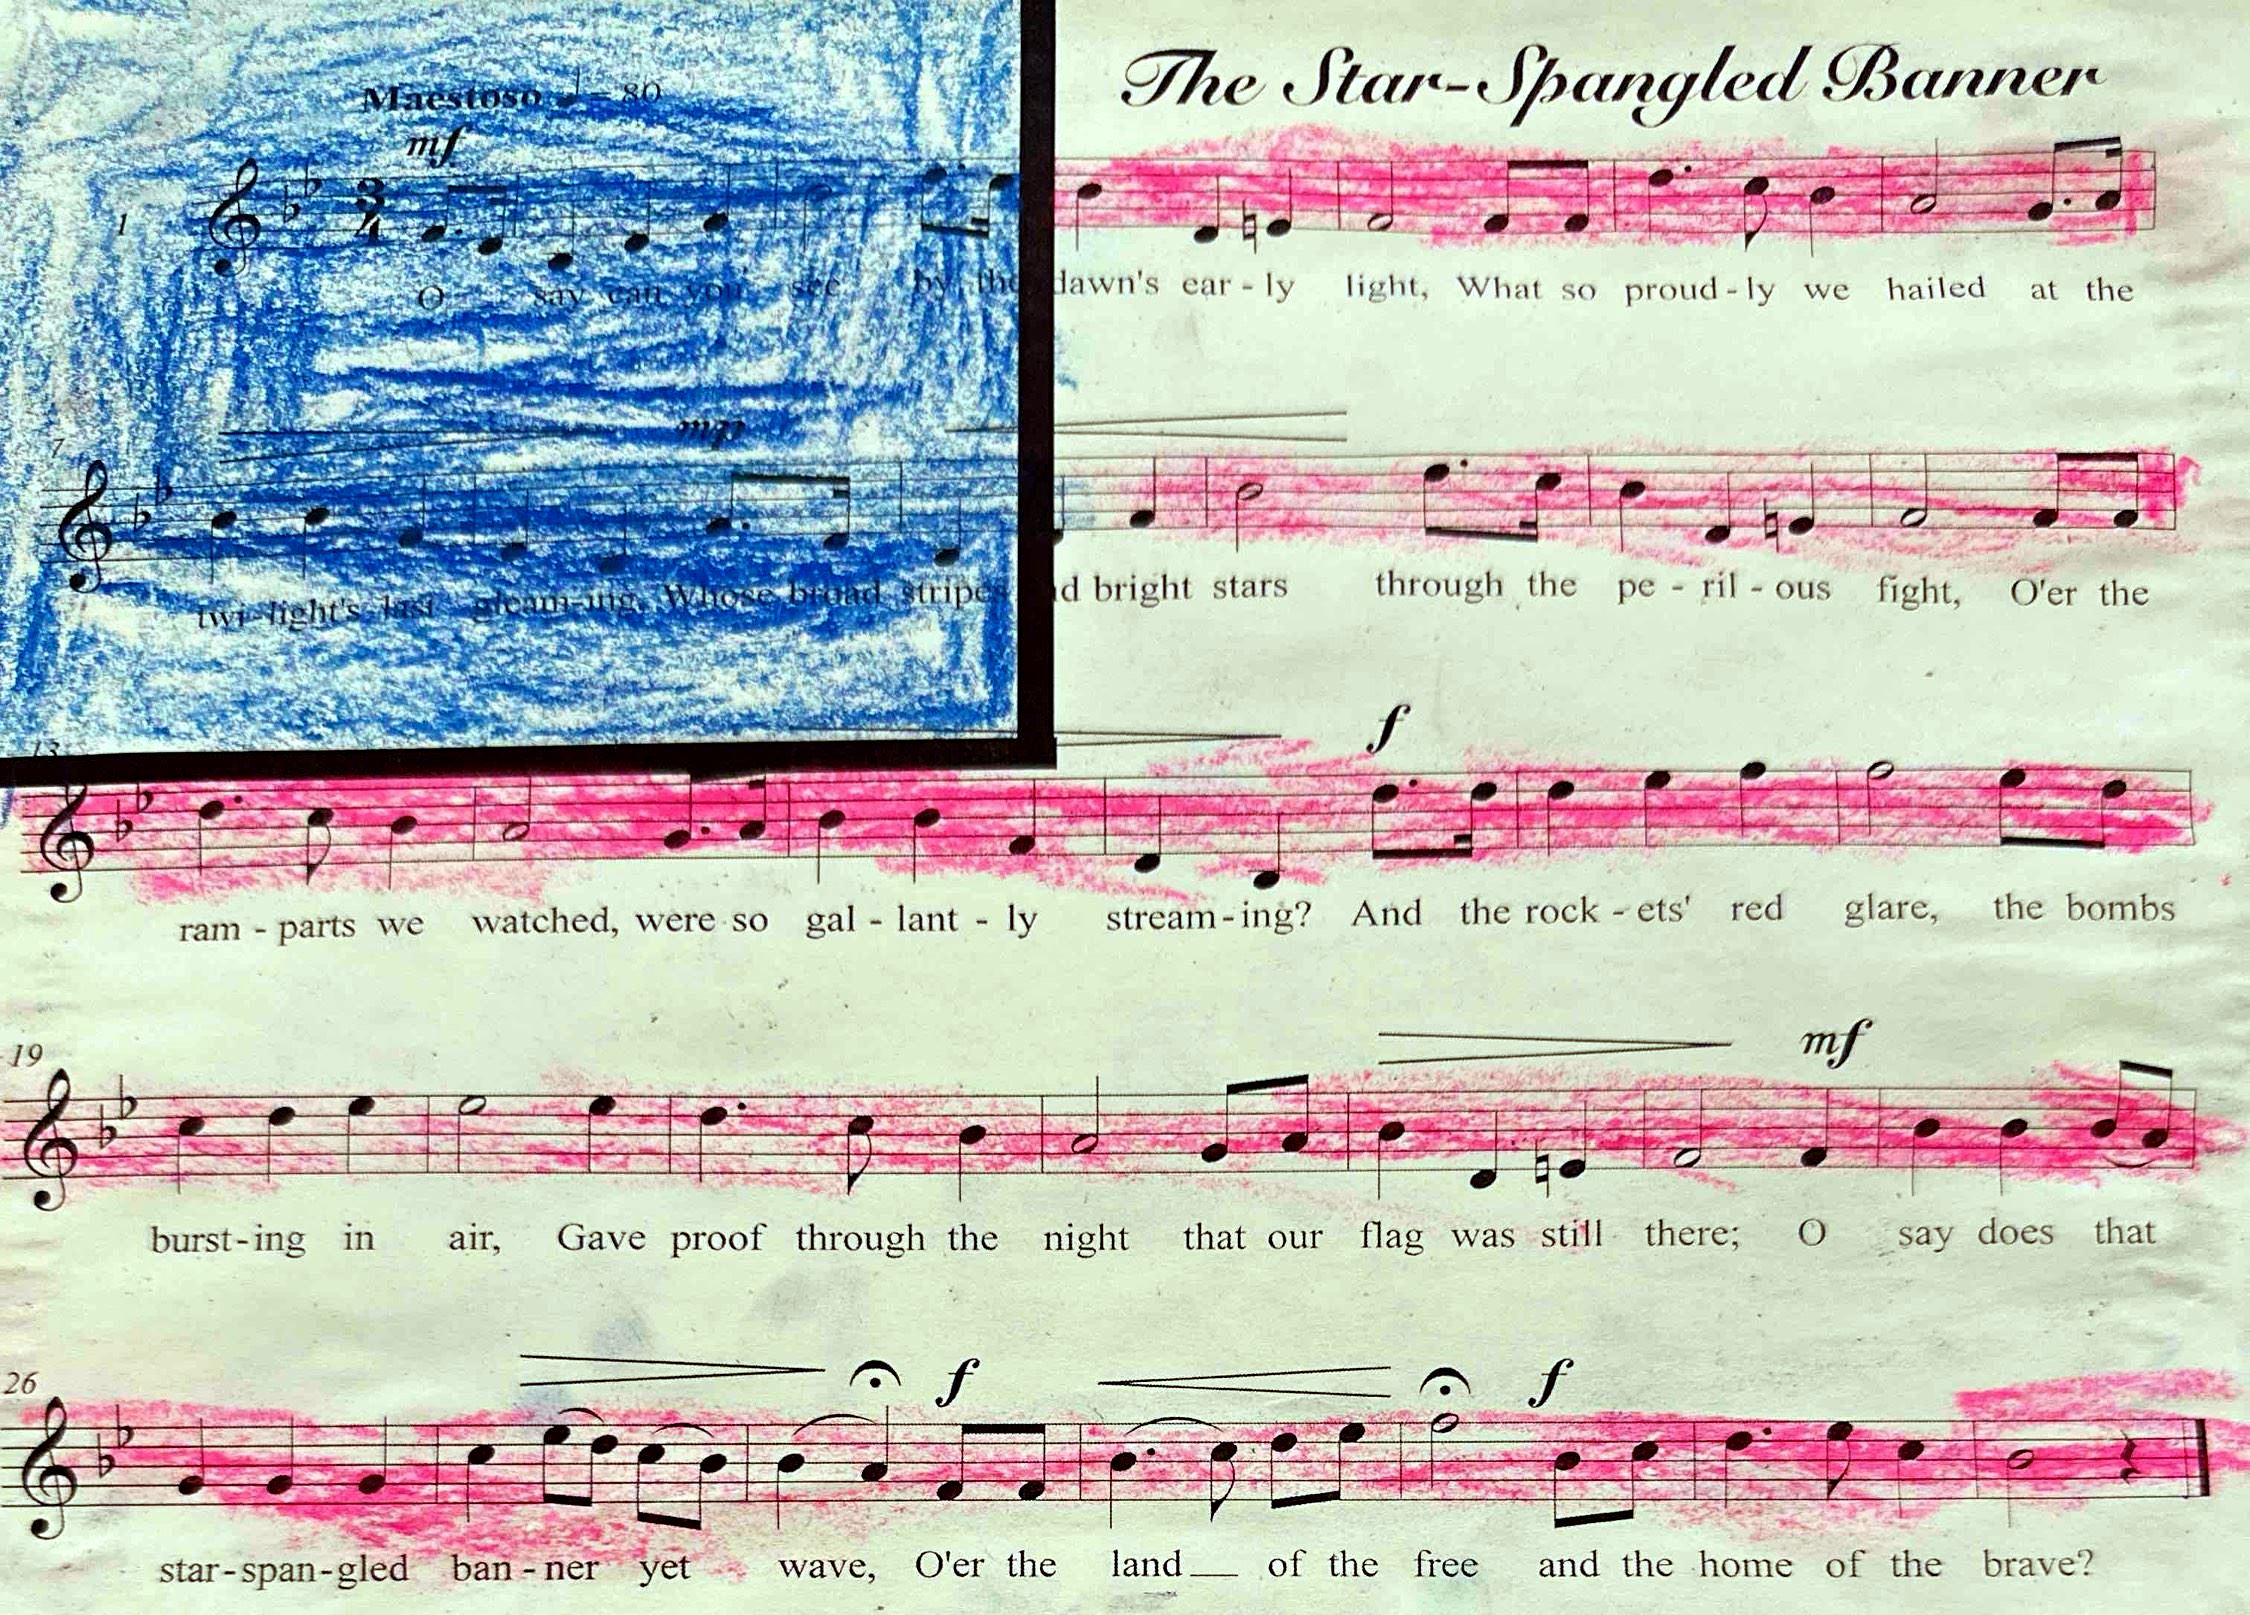 The Star-Spangled Banner
Maestoso ♩ = 80
mf
3
4
1
O say can you see by the dawn's ear - ly light, What so proud - ly we hailed at the
7
twi - light's last gleam-ing, Whose broad stripes bright stars through the pe - ril - ous fight, O'er the
13
f
ram - parts we watched, were so gal - lant - ly stream - ing? And the rock - ets' red glare, the bombs
19
mf
burst - ing in air, Gave proof through the night that our flag was still there; O say does that
26
f f
star - span - gled ban - ner yet wave, O'er the land __ of the free and the home of the brave?